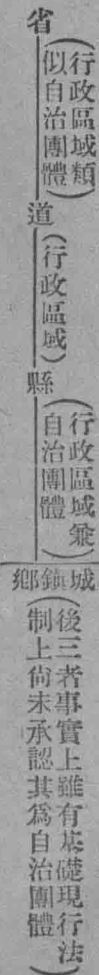 省
（行政區域類
似自治團體）
道（行政區域）
縣
（行政區域兼
自治團體）
城鎮鄉
（後三者事實上雖有基礎現行法
制上尚未承認其爲自治團體）